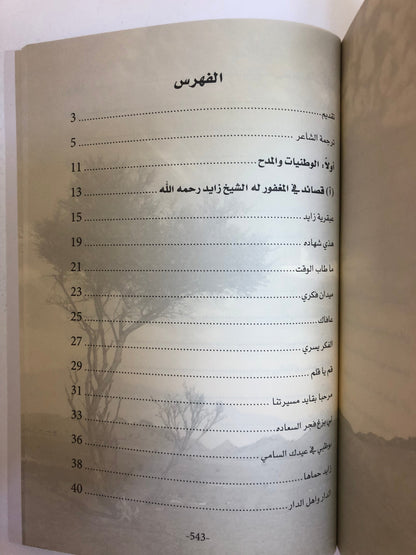 الفهرس
تقديم ........ 3
ترجمة الشاعر ........ 5
أولاً، الوطنيات والمدح ........ 11
(أ) قصائد في المغفور له الشيخ زايد رحمه الله ........ 13
عبقرية زايد ........ 15
هذي شهاده ........ 19
ما طاب الوقت ........ 21
ميدان فكري ........ 23
عافاك ........ 25
الفكر يسري ........ 27
قم يا قلم ........ 29
مرحبا بقايد مسيرتنا ........ 31
بزغ فجر السعاده ........ 33
بوظبي في عيدك السامي ........ 36
زايد حماها ........ 38
الدار واهل الدار ........ 40
-543-